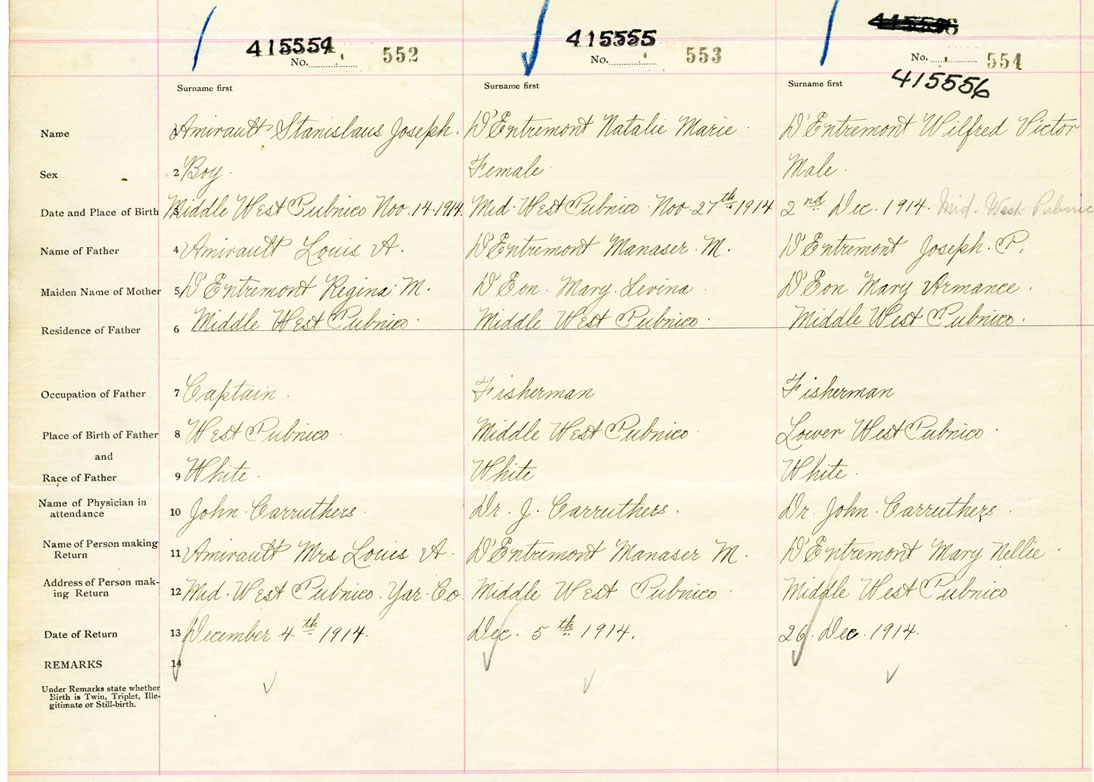 415554 415555 415556
No. 552 No. 553 No. 554
415556
Surname first Surname first Surname first
Name 1 Amirault Stanislaus Joseph. D'Entremont Natalie Marie D'Entremont Wilfred Victor
Sex 2 Boy. Female Male.
Date and Place of Birth 3 Middle West Pubnico Nov. 14 1914. Mid. West Pubnico Nov 27th 1914 2nd Dec. 1914. Mid. West Pubnico
Name of Father 4 Amirault Louis A. D'Entremont Manaser M. D'Entremont Joseph. P.
Maiden Name of Mother 5 D'Entremont Regina M. D'Eon. Mary Levina D'Eon Mary Armance.
Residence of Father 6 Middle West Pubnico Middle West Pubnico. Middle West Pubnico.
Occupation of Father 7 Captain Fisherman Fisherman
Place of Birth of Father 8 West Pubnico Middle West Pubnico Lower West Pubnico.
and
Race of Father 9 White. White White.
Name of Physician in
attendance 10 John Carruthers. Dr. J. Carruthers. Dr. John Carruthers.
Name of Person making
Return 11 Amirault Mrs Louis A. D'Entremont Manaser M. D'Entremont Mary Nellie.
Address of Person mak-
ing Return 12 Mid. West Pubnico. Yar. Co. Middle West Pubnico. Middle West Pubnico
Date of Return 13 December 4th 1914. Dec. 5th 1914. 26. Dec. 1914.
REMARKS 14
Under Remarks state whether
Birth is Twin, Triplet, Ille-
gitimate or Still-birth.